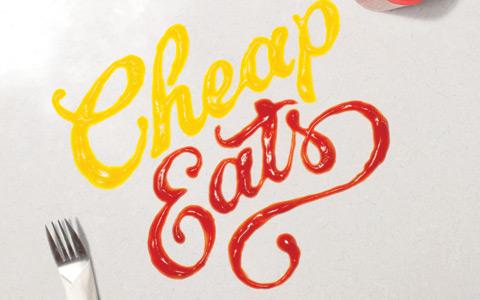 Cheap
Eats